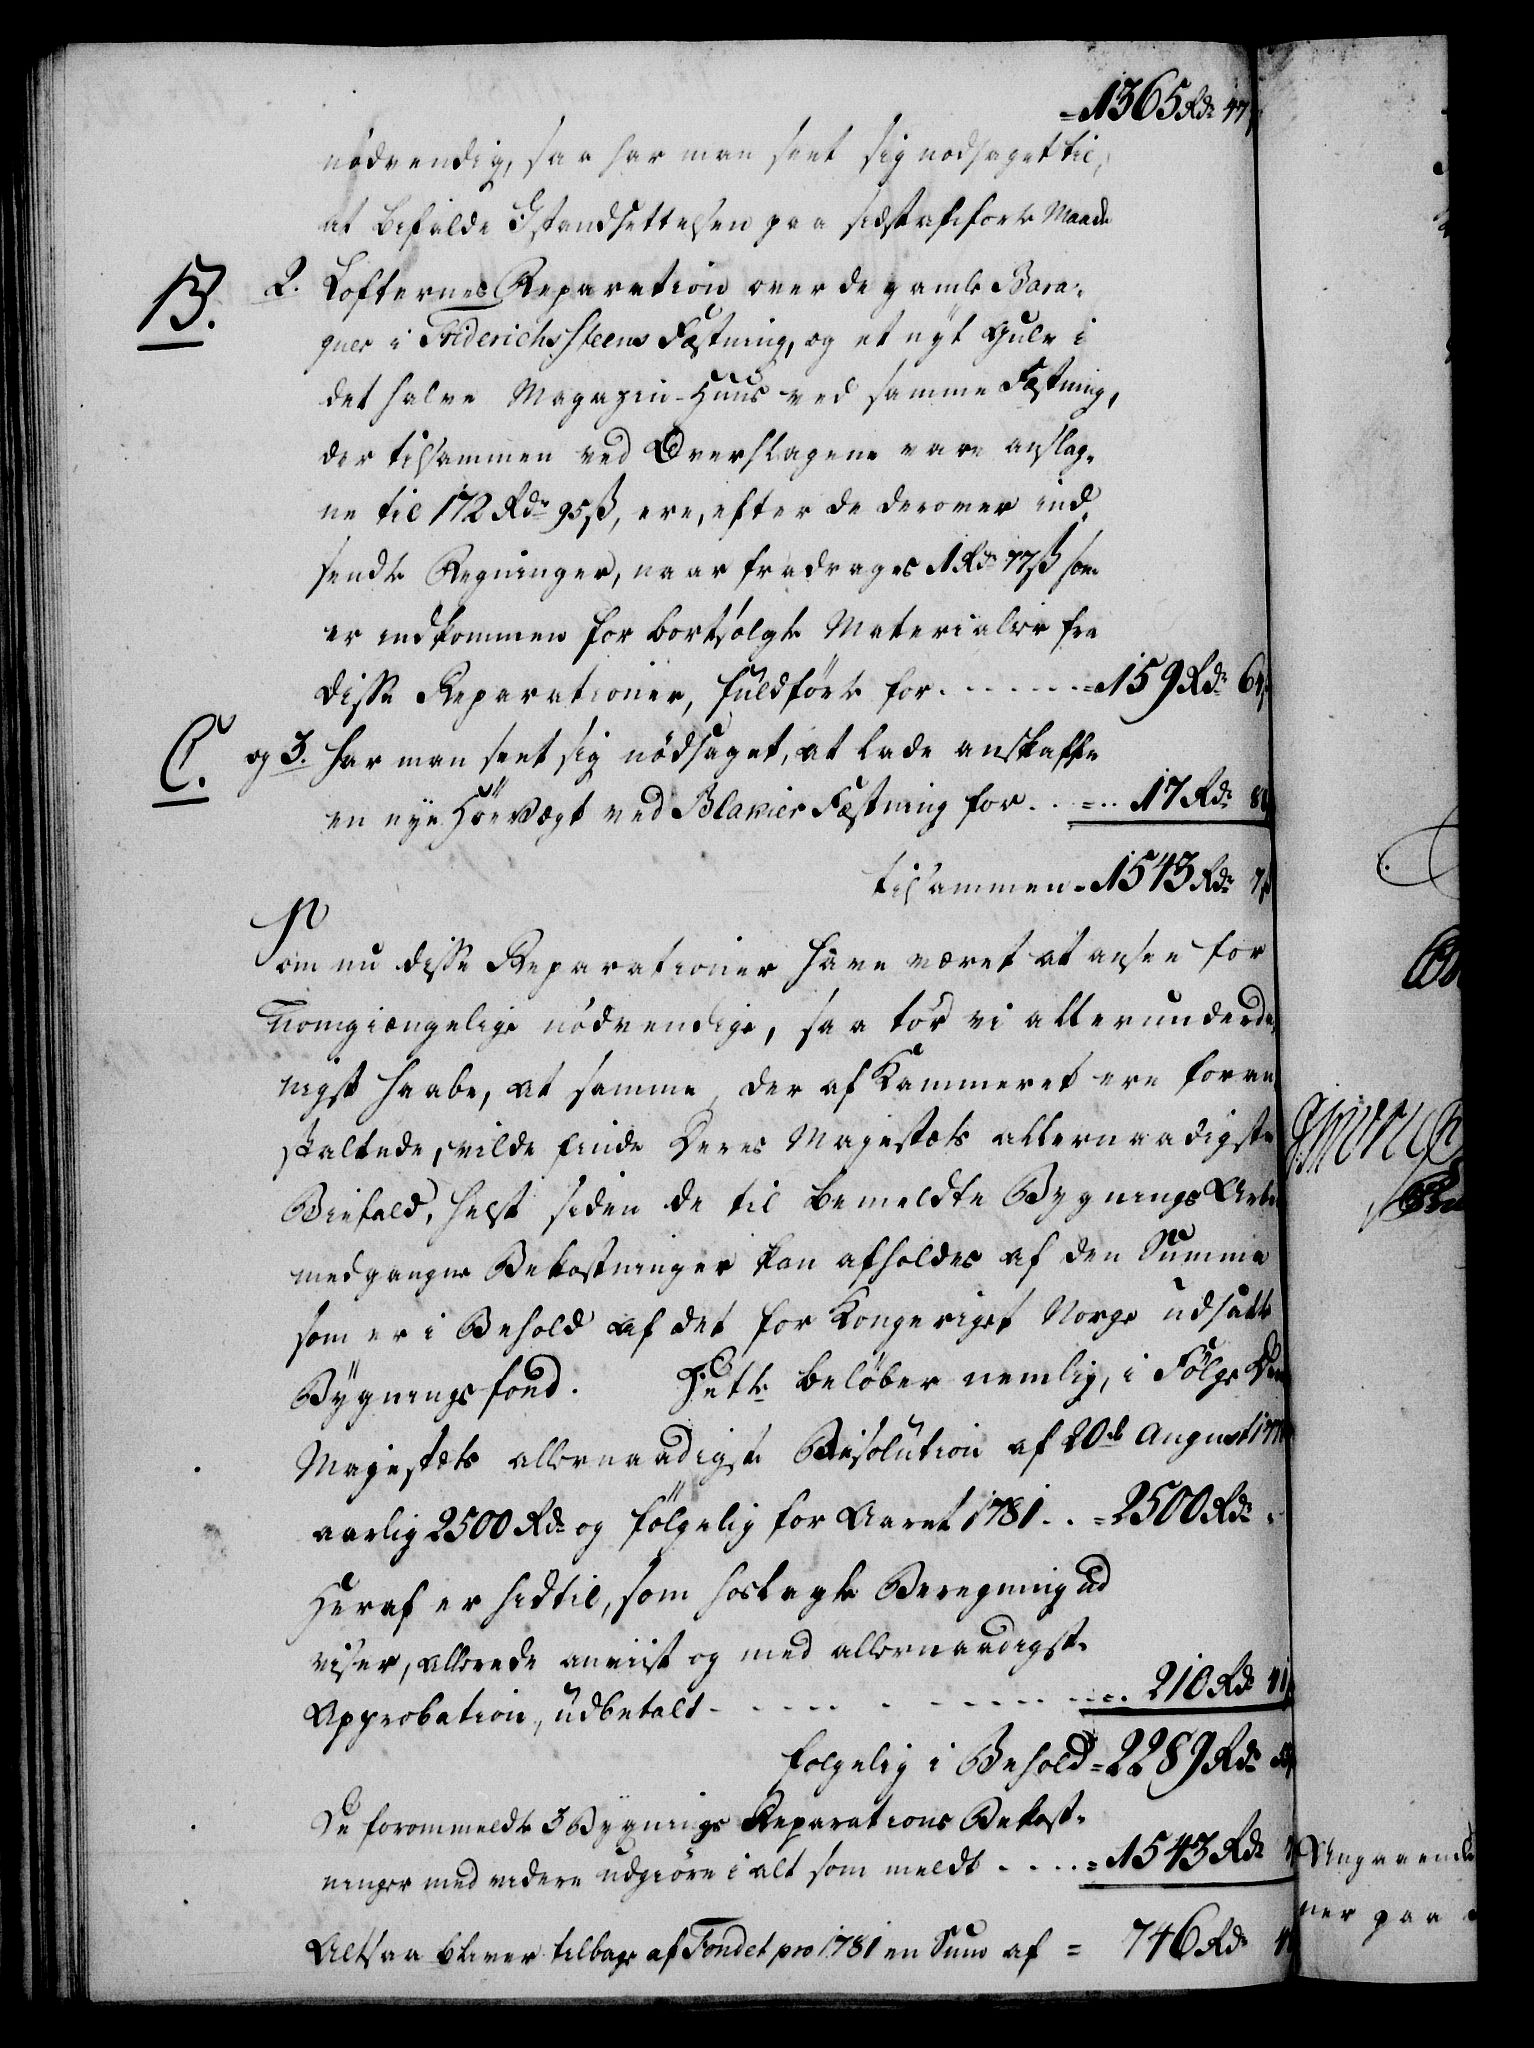 = 1365 Rdr 47
nødvendig, saa har man seet sig nødsaget til,
at befalde Istandsettelsen paa sidstanførte Maade
B. 2. Lofternes Reparation over de gamle Bara-
quer i Friderichssteens Fæstning, og et nyt Gulv i
det halve Magazin-Huus ved samme Fæstning,
der tilsammen ved Overslagene vare anslag-
ne til 172 Rdr 95 ß, ere, efter de derover ind-
sendte Regninger, naar fradrages 1 Rdr 77 ß som
er indkommen for bortsolgte Materialier fra
disse Reparationer, fuldført for . . . . . . = 159 Rdr 64
C. og 3. har man seet sig nødsaget, at lade anskaffe
en nye Høe Vægt ved Blakier Fæstning for . . = . . 17 Rdr
tilsammen = 1543 Rdr 7
Som nu disse Reparationer have været at ansee for
uomgiængelige nødvendige, saa tør vi allerunderda-
nigst haabe, at samme, der af Kammeret ere foran-
staltede, vilde finde Deres Majestæts allernaadigste
Biefald, helst siden de til bemeldte Bygnings Arbei
medgangne Bekostninger kan afholdes af den Summe
som er i Behold af det for Kongeriget Norge udsatte
Bygningsfond. Dette beløber nemlig, i Følge De
Majestæts allernaadigste Resolution af 20de August
aarlig 2500 Rdr og følgelig for Aaret 1781 . . = 2500 Rdr
Heraf er hidtil, som hoslagte Beregning ud
viser, allerede anviist og med allernaadigste
Approbation, udbetalt - - - - - - - - . . 210 Rdr 41
følgelig i Behold = 2289 Rdr
De forommeldte 3 Bygnings Reparations Bekost-
ninger med videre udgiøre i alt som meldt . . . . = 1543 Rdr
Altsaa bliver tilbage af Fondet pro 1781 en Sum af = 746 Rdr
Angaaende
ner paa